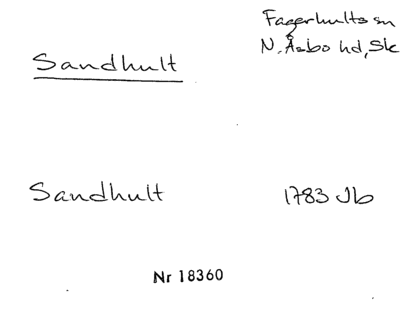 Fagerhults sn
N. Åsbo hd, Sk
Sandhult
Sandhult 1783 Jb
Nr 18360